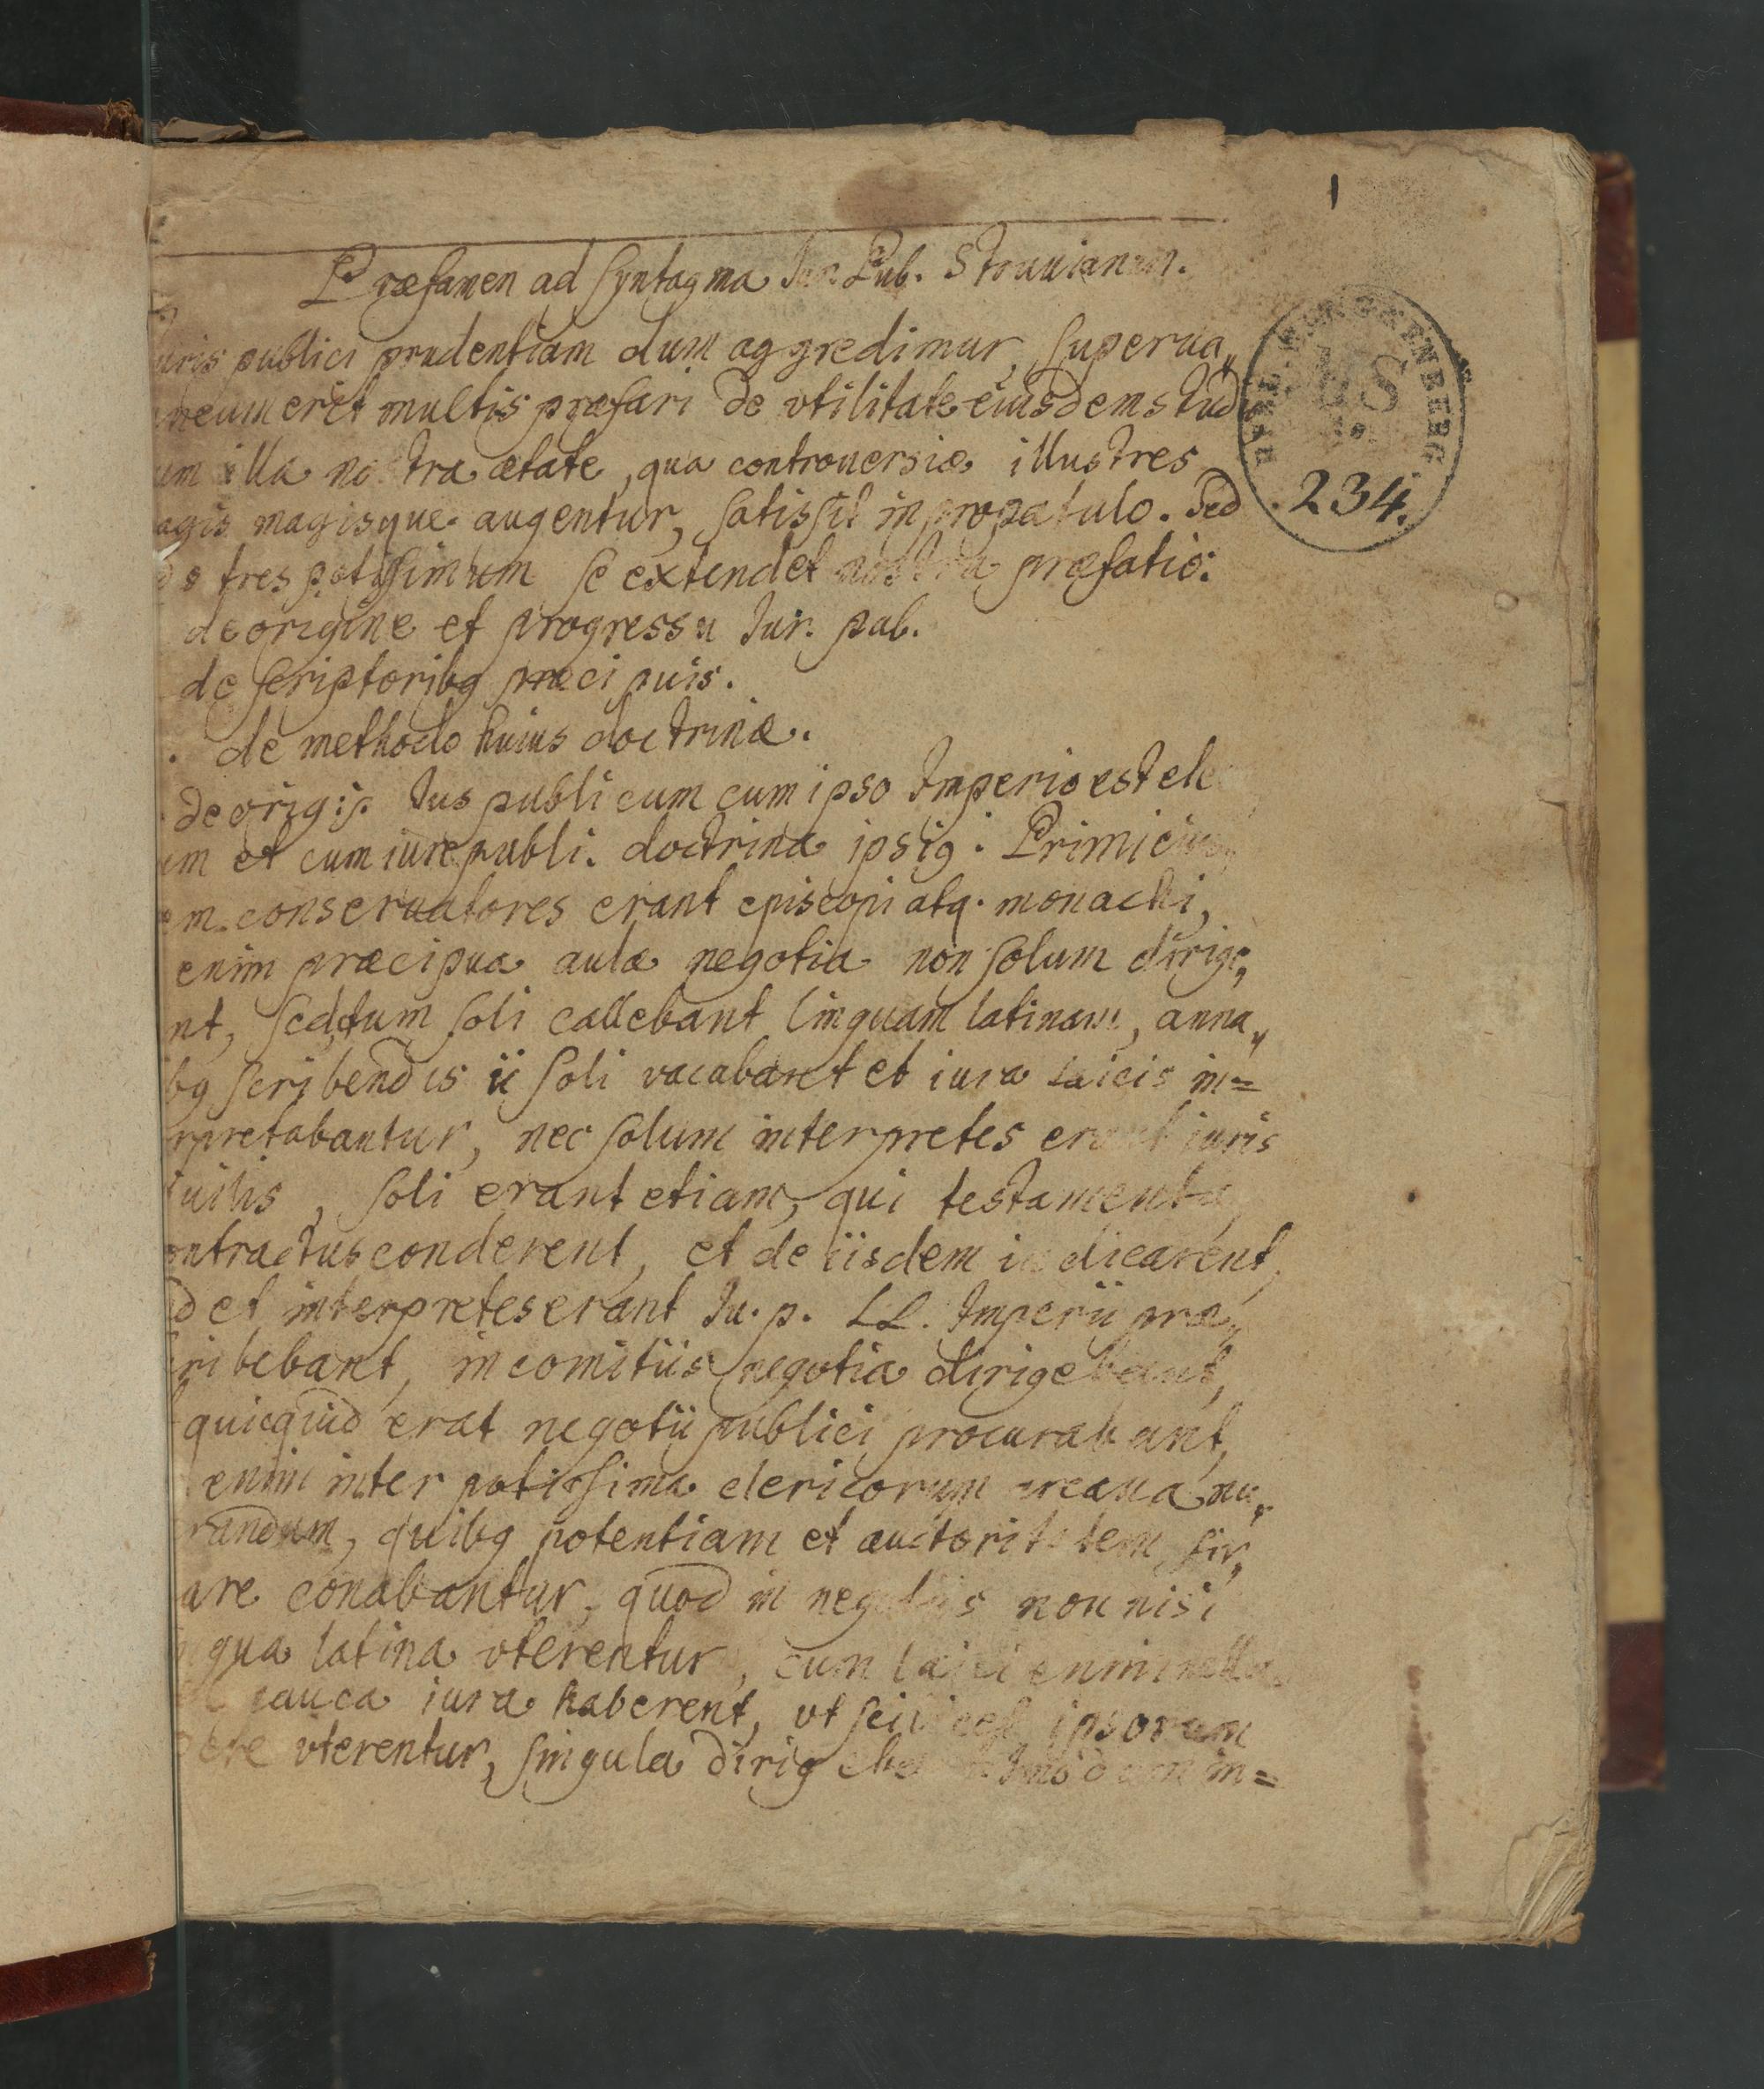 1
Præfamen ad Syntagma Jur. Pub. Struuianum.
uris publici prudentiam dum aggredimur, superua„
neum eret multis præfari de vtilitate eiusdem stud
um illa nostra ætate, qua controuersiæ illustres
agis magisque augentur, satis sit in propatulo. Sed
tres potissimum se extendet nostra præfatio:
de origine et progressu Jur. pub.
de scriptoribq præcipuis.
. de methodo huius doctrinæ.
de orig: p. Jus publicum cum ipso Imperio est
um et cum iure publi. doctrina ipsiq. Primi
m conseruatores erant episcopi atq. monachi,
enim præcipua aulæ negotia non solum dirige„
nt, sed tum soli callebant linguam latinam, anna„
bq scribendis ii soli vacabant et iura laicis in=
rpretabantur, nec solum interpretes erant iuris
uilis, soli erant etiam, qui testamenta
ontractus conderent, et de iisdem iudicarent,
d et interpretes erant Ju. p. LL. Imperii præ„
ribebant, in comitiis negotia dirigebant,
quicquid erat negotii publici procurabant,
enim inter potissima clericorum arcana nu„
randum, quibq potentiam et auctoritatem fir„
are conabantur, quod in negotiis non nisi
gua latina vterentur, cum laici enim
pauca iura haberent, vt scilicet ipsorum
vterentur, singula in=
BS
234.